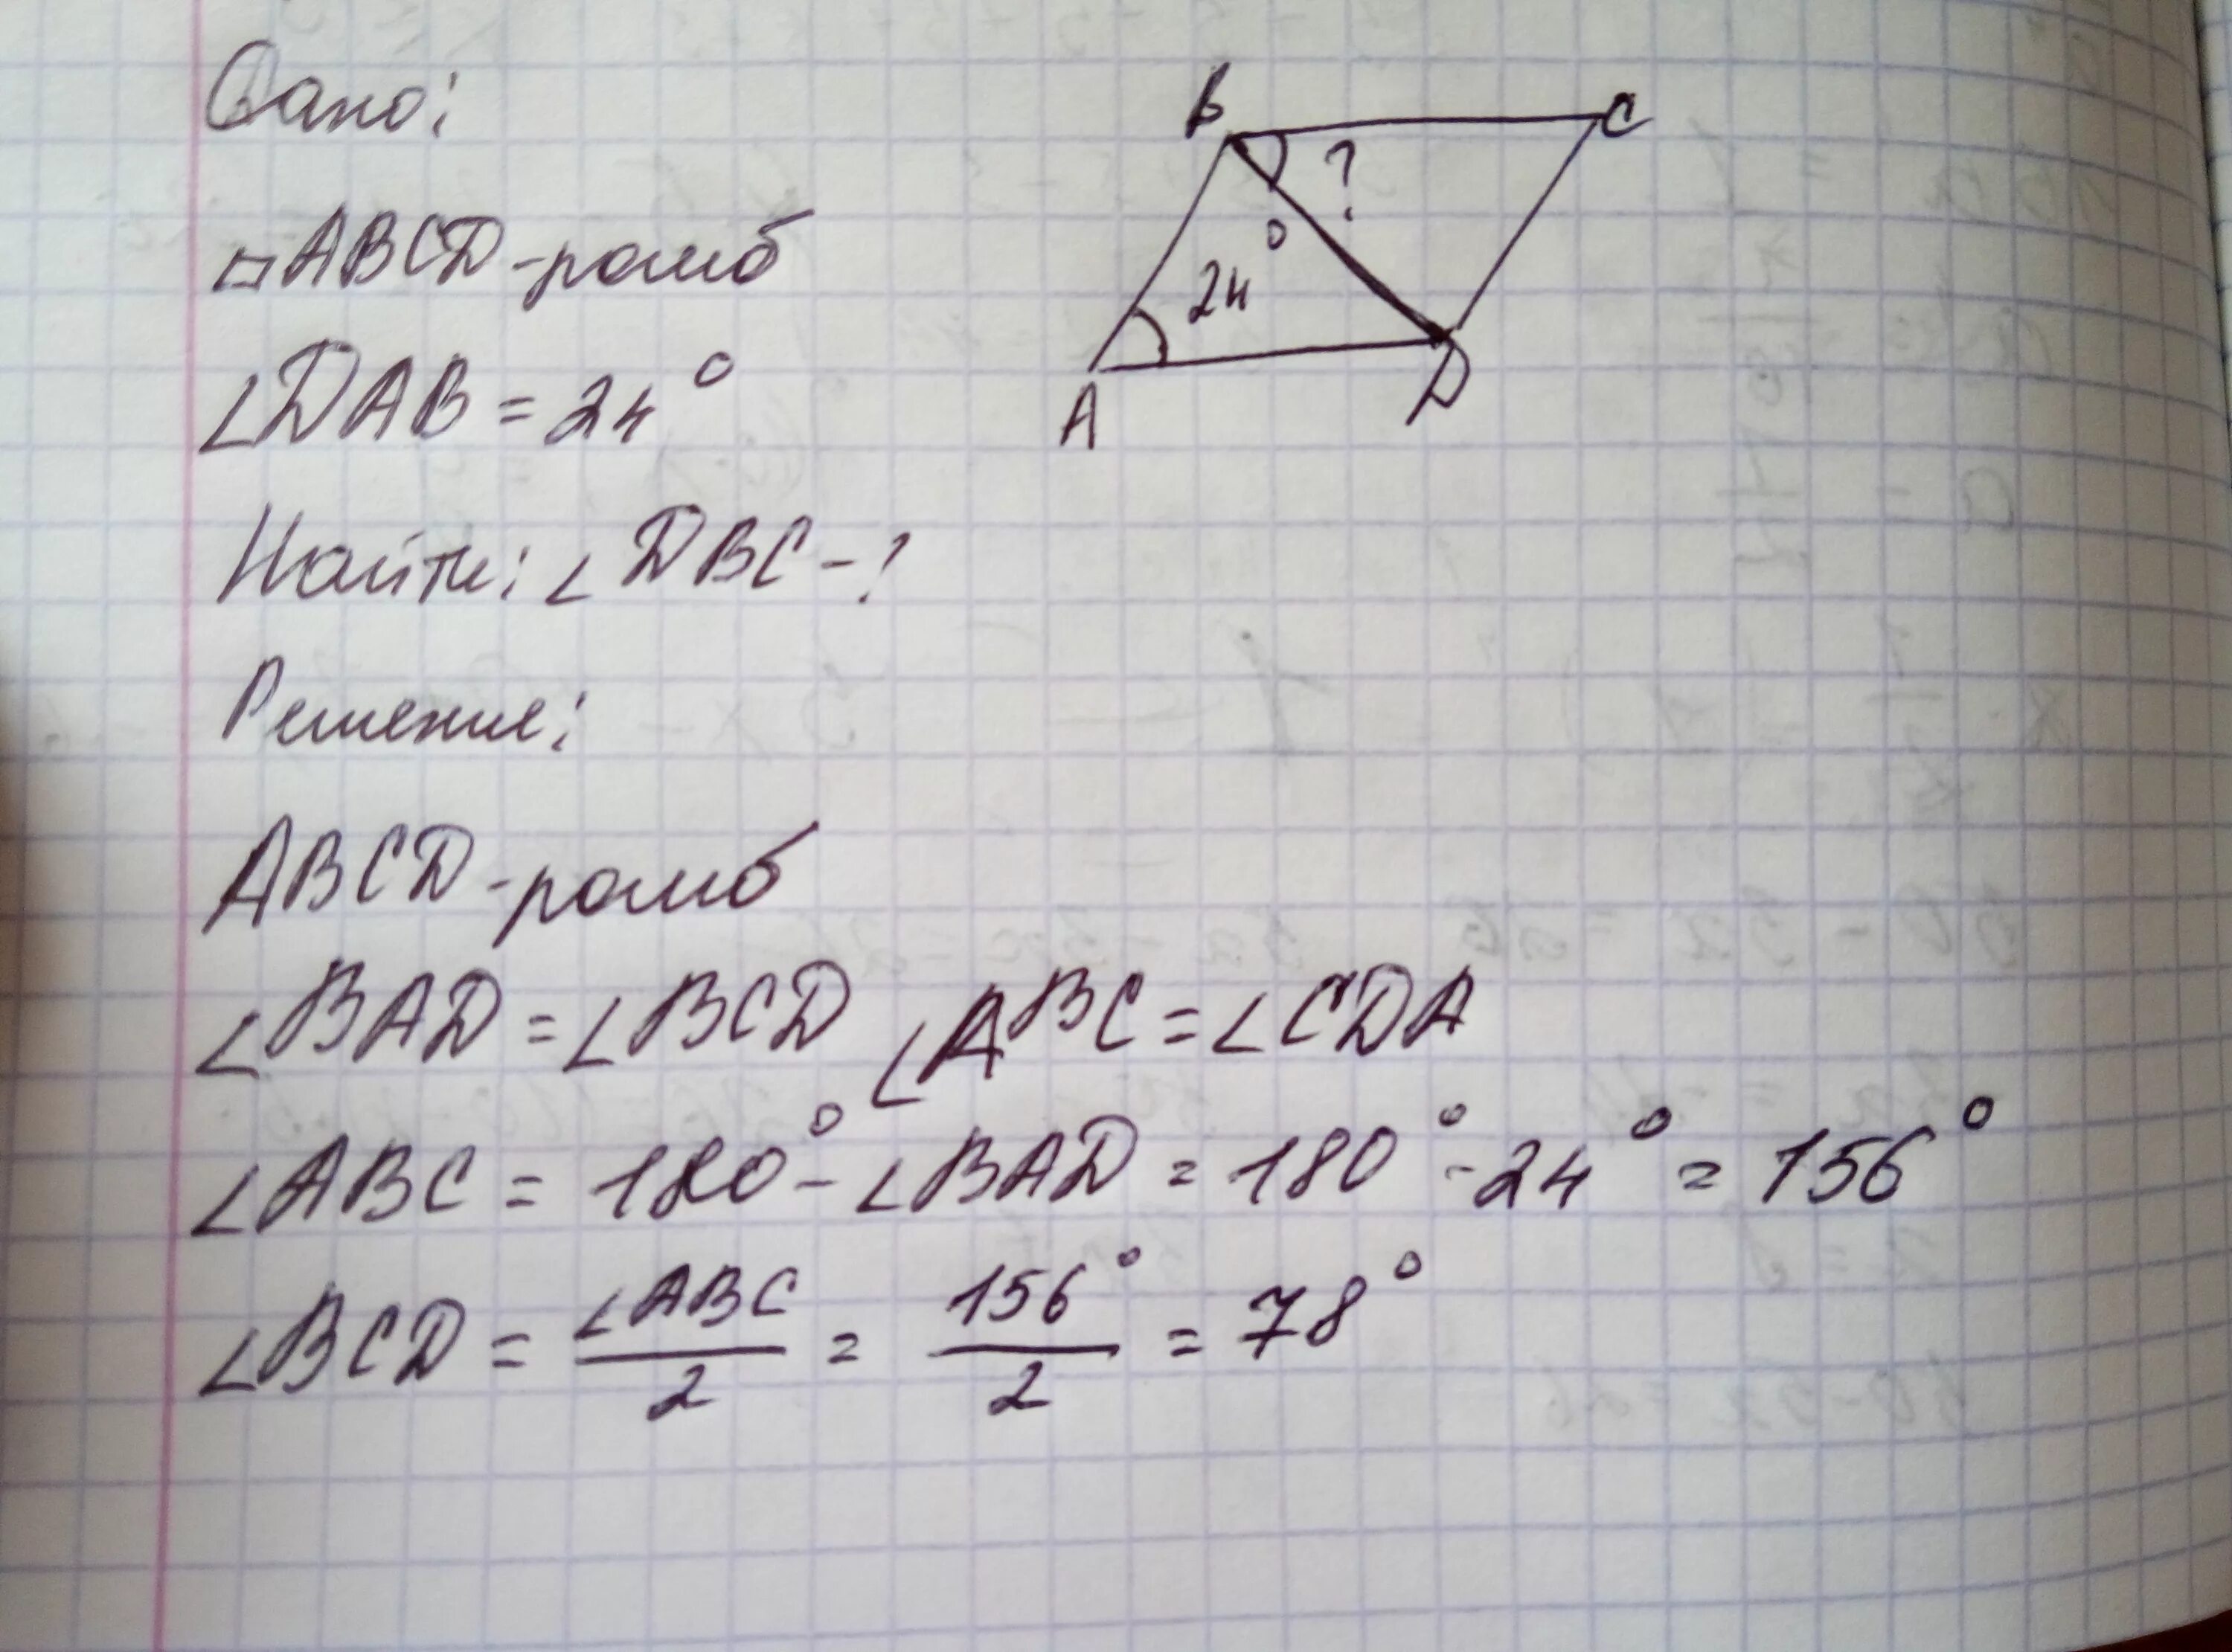 Дано:
▱ABCD - ромб
∠DAB = 24°
Найти: ∠DBC - ?
Решение:
ABCD - ромб
∠BAD = ∠BCD ∠ABC = ∠CDA
∠ABC = 180° - ∠BAD = 180° - 24° = 156°
∠BCD = ∠ABC/2 = 156°/2 = 78°
B
C
?
24°
A
D